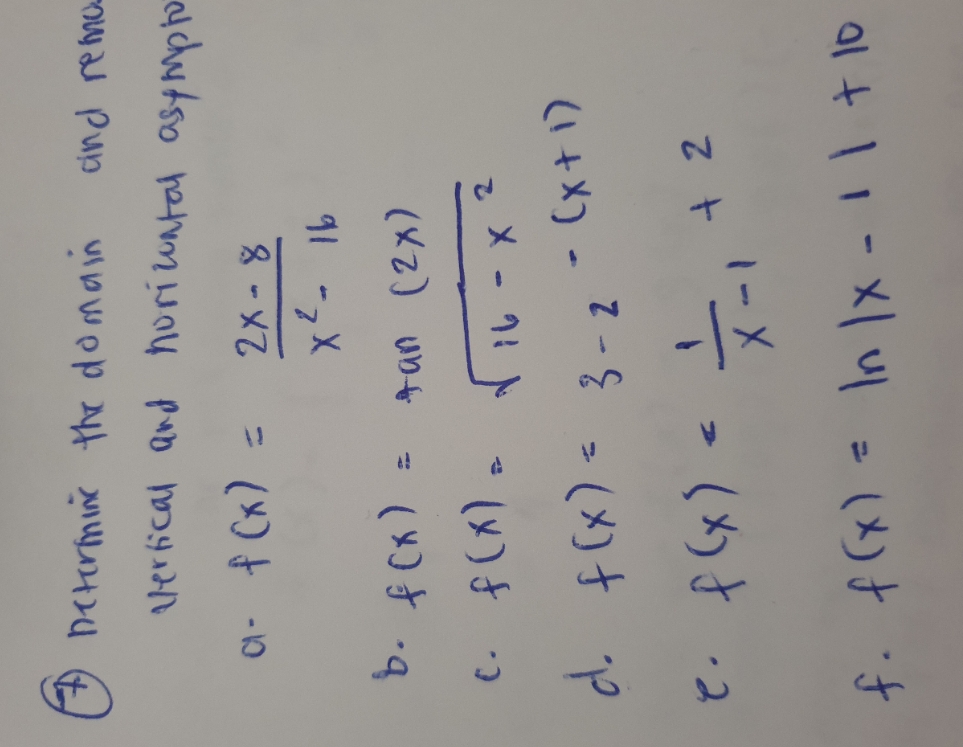 7 Determine the domain and
vertical and horizontal
a. f(x) = 2x - 8 / x² - 16
b. f(x) = tan (2x)
c. f(x) = √16 - x²
d. f(x) = 3 - 2 - (x + 1)
e. f(x) = 1 / x - 1 + 2
f. f(x) = ln |x - 1| + 10